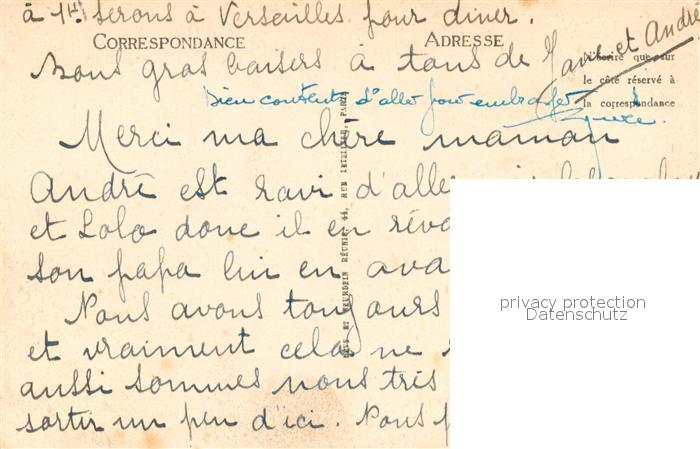 à 1h serons à Versailles pour diner.
CORRESPONDANCE ADRESSE
Bons gros baisers à tous de Marie et André
N'écrire que sur
le côté réservé à
la correspondance
Bien contents d'aller vous embrasser
Merci ma chère maman
André est ravi d'aller voir
et Lolo donc il en rêv
son papa lui en ava
Nous avons toujours
et vraiment cela ne
aussi sommes nous très
sortir un peu d'ici. Nous
LEVY ET NEURDEIN RÉUNIS, 44, RUE LETELLIER, PARIS
privacy protection
Datenschutz